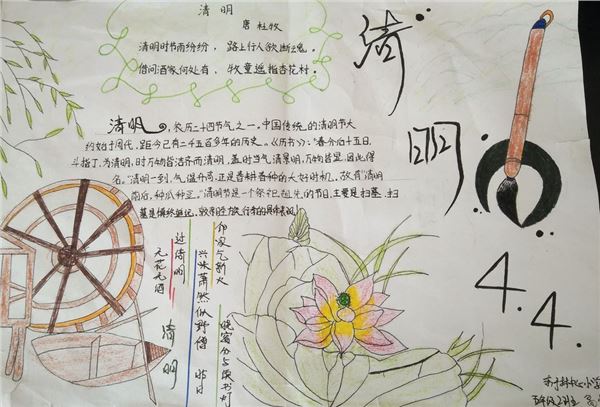 清明
唐 杜牧
清明时节雨纷纷，路上行人欲断魂。
借问酒家何处有，牧童遥指杏花村。
清明，农历二十四节气之一。中国传统的清明节大
约始于周代，距今已有二千五百多年的历史。《历书》："春分后十五日，
斗指丁，为清明，时万物皆洁齐而清明，盖时当气清景明，万物皆显，因此得
名。"清明一到，气温升高，正是春耕春种的大好时机，故有"清明
前后，种瓜种豆。"清明节是一个祭祀祖先的节日，主要是扫墓，扫
清明
4.4
清明
无花无酒
过清明
兴味萧然似野僧
昨日
邻家乞新火
晓窗分与读书灯